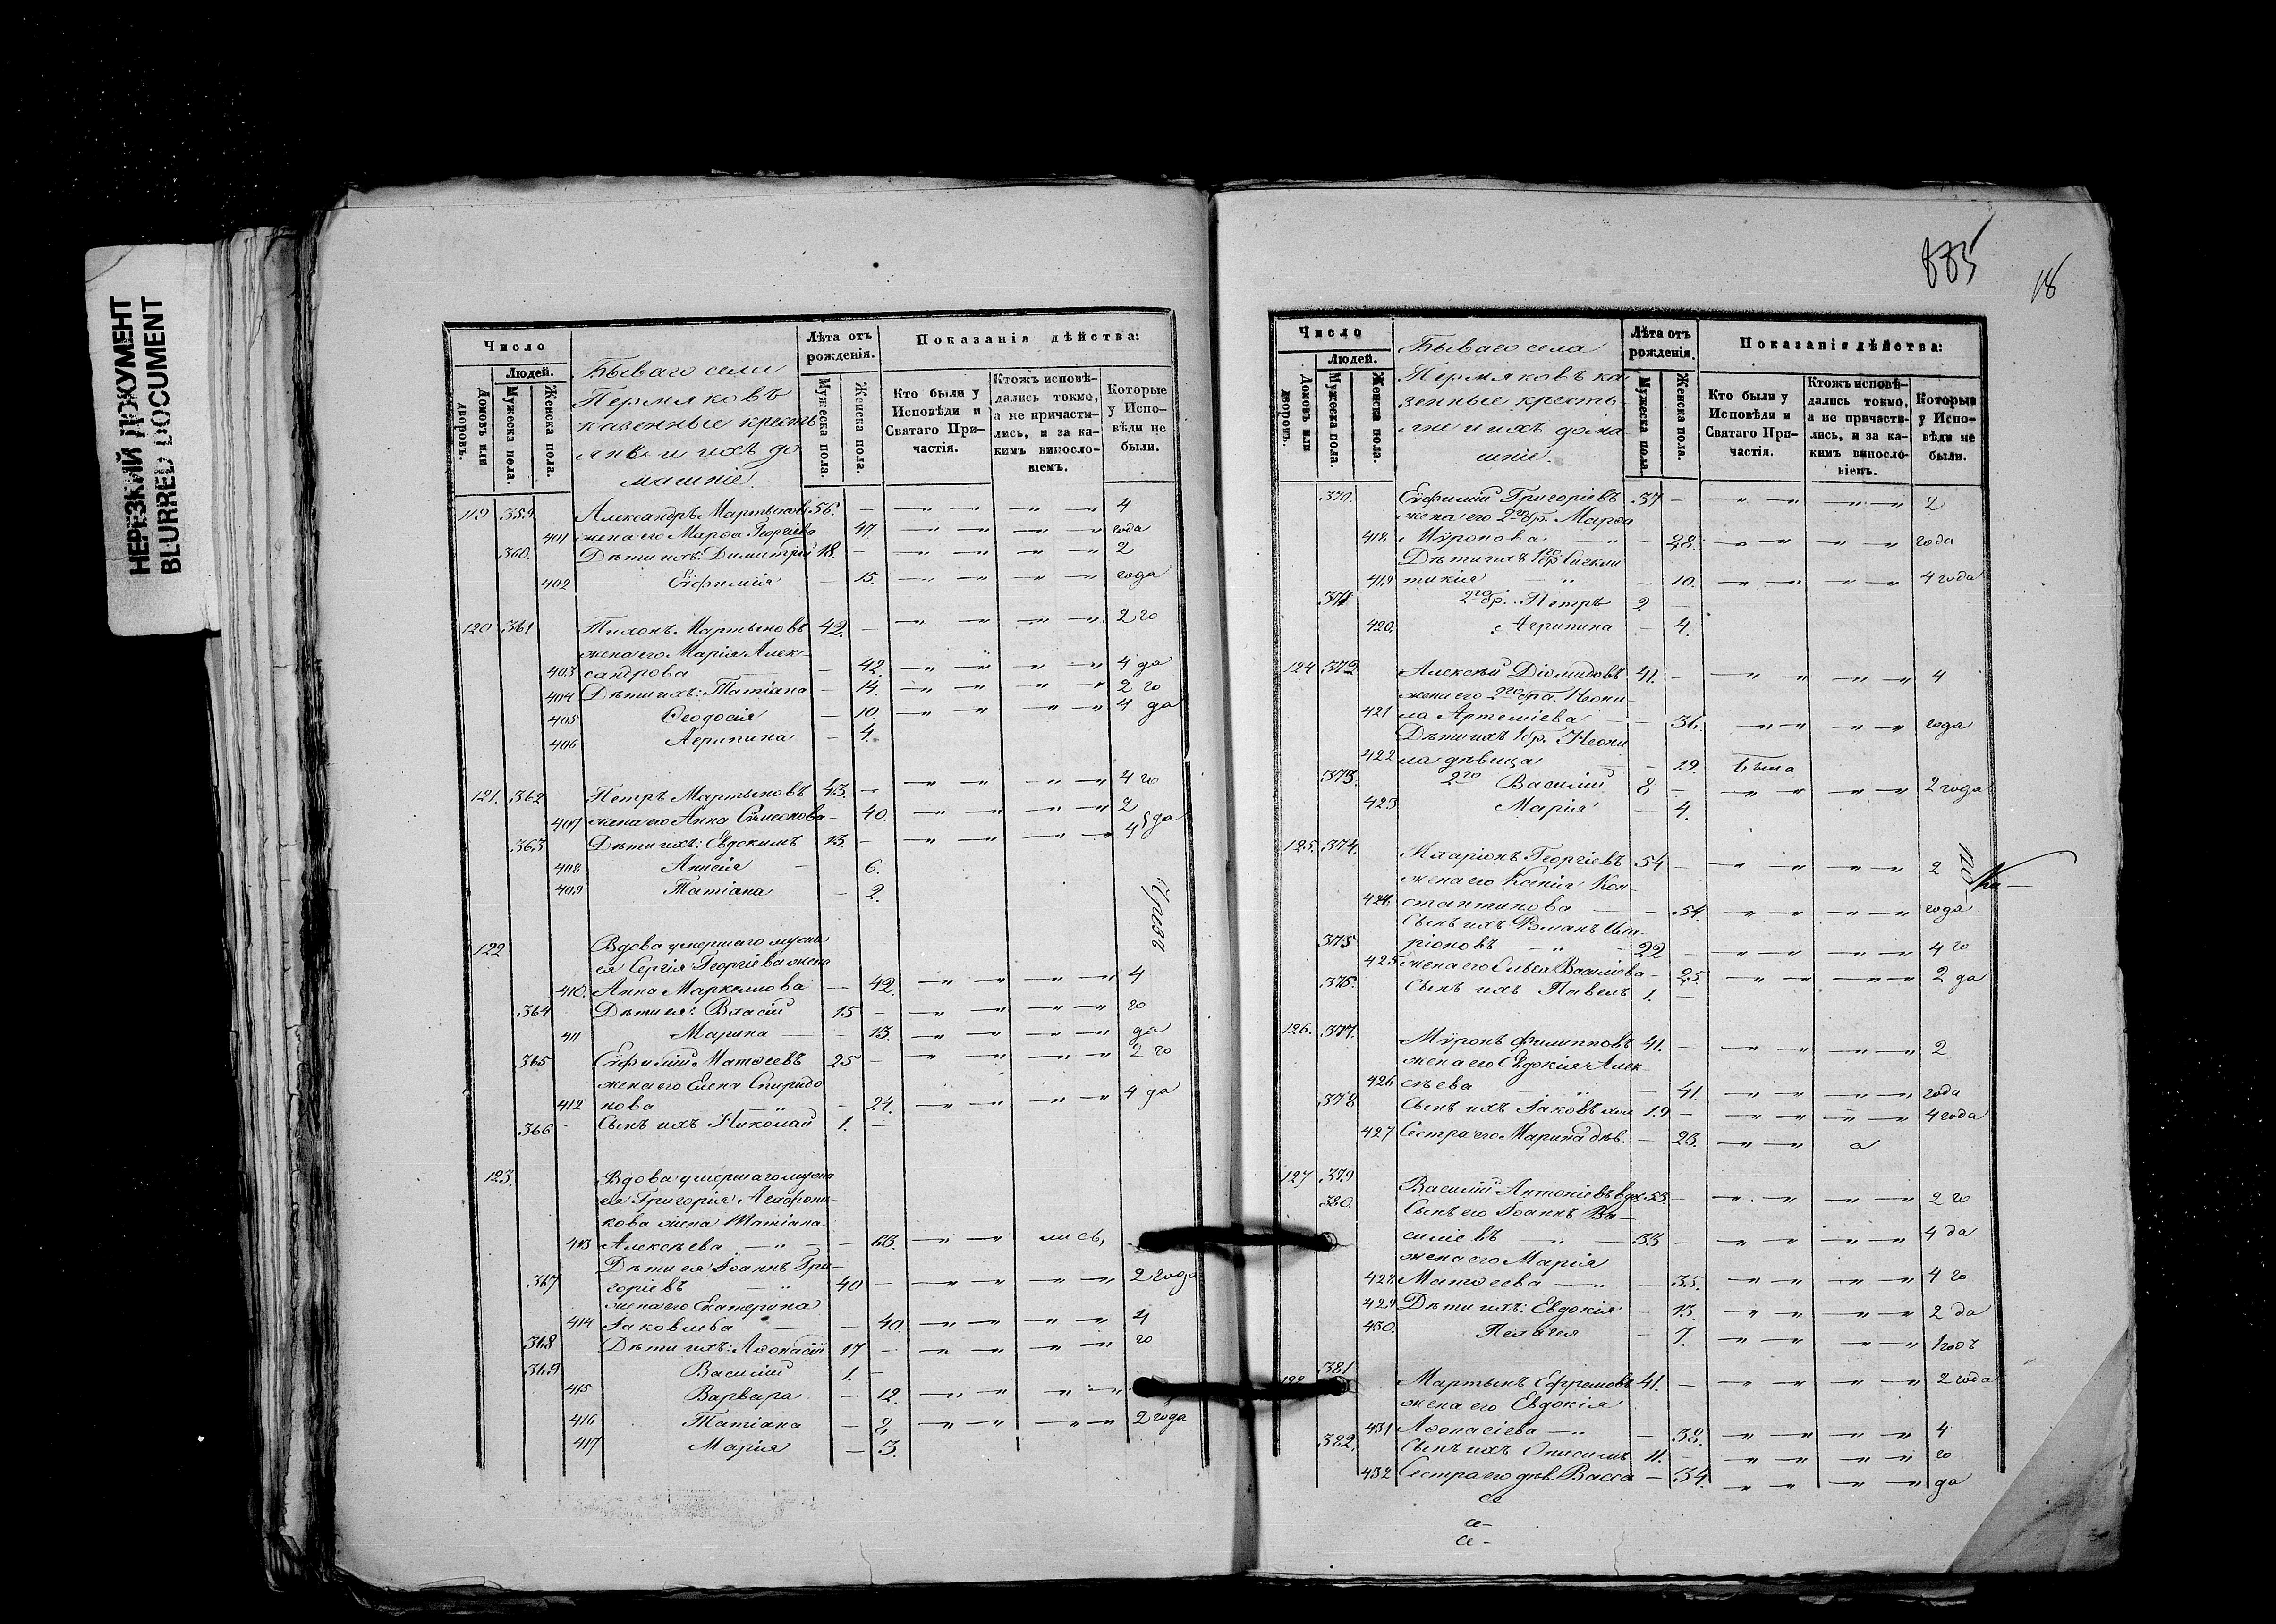 НЕРЕЗКИЙ ДОКУМЕНТ
BLURRED DOCUMENT
Число
Людей.
Домовъ или дворовъ.
Мужеска пола.
Женска пола.
Бываго села
Пермяковъ
казенные кресть
яне и ихъ до
машніе.
Лѣта отъ рожденія.
Мужеска пола.
Женска пола.
Показанія дѣйства:
Кто были у Исповѣди и Святаго Причастія.
Ктожъ исповѣдались токмо, а не причастились, и за какимъ винословіемъ.
Которые у Исповѣди не были.
119 359 Александръ Мартыновъ 56. — 4
401 жена его Марѳа Георгіева 47. года
360. Дѣти ихъ: Димитрій 18. — 2
402 Евфимія — 15. года
120 361 Тихонъ Мартыновъ 42. — 2 го
жена его Марія Алек-
403 сандрова — 42. 4 да
404 Дѣти ихъ: Татіана — 14. 2 го
405 Ѳеодосія — 10. 4 да
406 Агрипина — 4.
121. 362 Петръ Мартыновъ 43. — 4 го
407 жена его Анна Симеонова — 40. 2
363 Дѣти ихъ: Евдокимъ 13. — 4 да
408 Анисія — 6.
409 Татіана — 2.
122 Вдова умершаго мужа
ея Сергія Георгіева жена
410. Анна Маркелова — 42. 4
364 Дѣти ея: Власій 15 — го
411 Марина — 13. да
365 Евфимій Матѳеевъ 25 — 2 го
жена его Елена Спиридо
412 нова — 24. 4 да
366 Сынъ ихъ Николай 1. —
123. Вдова умершаго мужа
ея Григорія Андрони-
кова жена Татіана
413 Алексѣева — 63. лись,
Дѣти ея Іоаннъ Гри-
367 горіевъ 40 — 2 года
жена его Екатерина
414 Іаковлева — 40. 4
368 Дѣти ихъ: Аѳанасій 17 — го
369 Василій 1. —
415 Варвара — 12.
416 Татіана — 8 2 года
417 Марія — 3.
885
18
Число
Людей.
Домовъ или дворовъ.
Мужеска пола.
Женска пола.
Бываго села
Пермяковъ ка
зенные кресть-
яне и ихъ дома
шніе.
Лѣта отъ рожденія.
Мужеска пола.
Женска пола.
Показанія дѣйства:
Кто были у Исповѣди и Святаго Причастія.
Ктожъ исповѣдались токмо, а не причастились, и за какимъ винословіемъ.
Которые у Исповѣди не были.
370. Евфимій Григоріевъ 37 — 2
жена его 2го бр. Марѳа
418 Мѵронова — 28. года
Дѣти ихъ 1го бр Синкли
419 тикія — 10. 4 года
371 2го бр. Петръ 2 —
420. Агрипина — 4.
124 372 Алексѣй Діомидовъ 41. — 4
жена его 2го бра. Неони-
421 ла Артеміева — 36. года
Дѣти ихъ 1 бр. Неони
422 ла дѣвица — 19. была
373. 2го Василій 8 — 2 года
423 Марія — 4.
125. 374. Иларіонъ Георгіевъ 54 — 2
жена его Ксенія Кон-
424 стантинова — 54. года
Сынъ ихъ Романъ Ила-
375 ріоновъ — 22 — 4 го
425 жена его Ольга Василіева — 25. 2 да
376. Сынъ ихъ Павелъ 1. —
126. 377. Мѵронъ Филипповъ 41. — 2
жена его Евдокія Алек
426 сѣева — 41. года
378 Сынъ ихъ Іаковъ 19 — 4 года
427 Сестра его Марина дѣв. — 23. а
127 379 Василій Антоніевъ вдо. 53 — 2 го
380. Сынъ его Іоаннъ Ва-
силіевъ 33 — 4 да
жена его Марія
428 Матѳеева — 35. 4 го
429 Дѣти ихъ: Евдокія — 13. 2 да
430. Пелагея — 7. 1 годъ
381 Мартынъ Ефремовъ 41. — 2 года
жена его Евдокія
431 Аѳонасіева — 38. 4
382. Сынъ ихъ Онисимъ 11. — го
432 Сестра его дѣв. Васса — 34. да